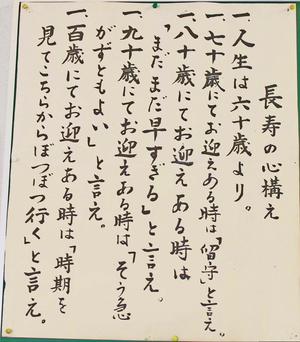 長寿の心構え
一、人生は六十歳より。
一、七十歳にてお迎えある時は「留守」と言え。
一、八十歳にてお迎えある時は
「まだまだ早すぎる」と言え。
一、九十歳にてお迎えある時は「そう急
がずともよい」と言え。
一、百歳にてお迎えある時は「時期を
見てこちらからぼつぼつ行く」と言え。